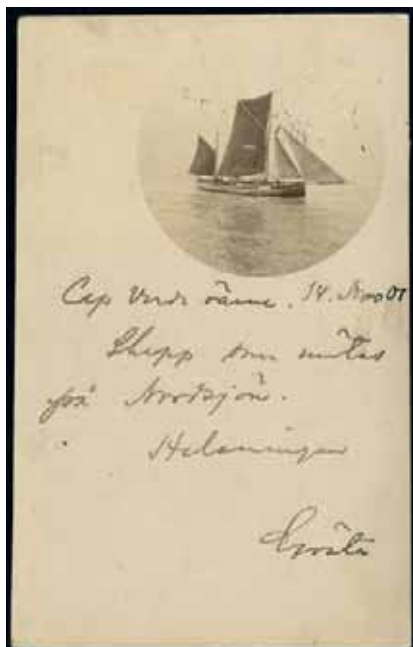 Cap Verde öarne. 14. Nov 01
Skepp som mötes
på Nordsjön.
Helsningar
Gösta